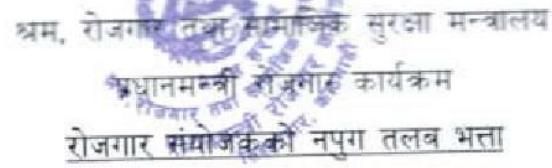 श्रम, रोजगार तथा सामाजिक सुरक्षा मन्त्रालय
प्रधानमन्त्री रोजगार कार्यक्रम
रोजगार संयोजकको नपुग तलब भत्ता